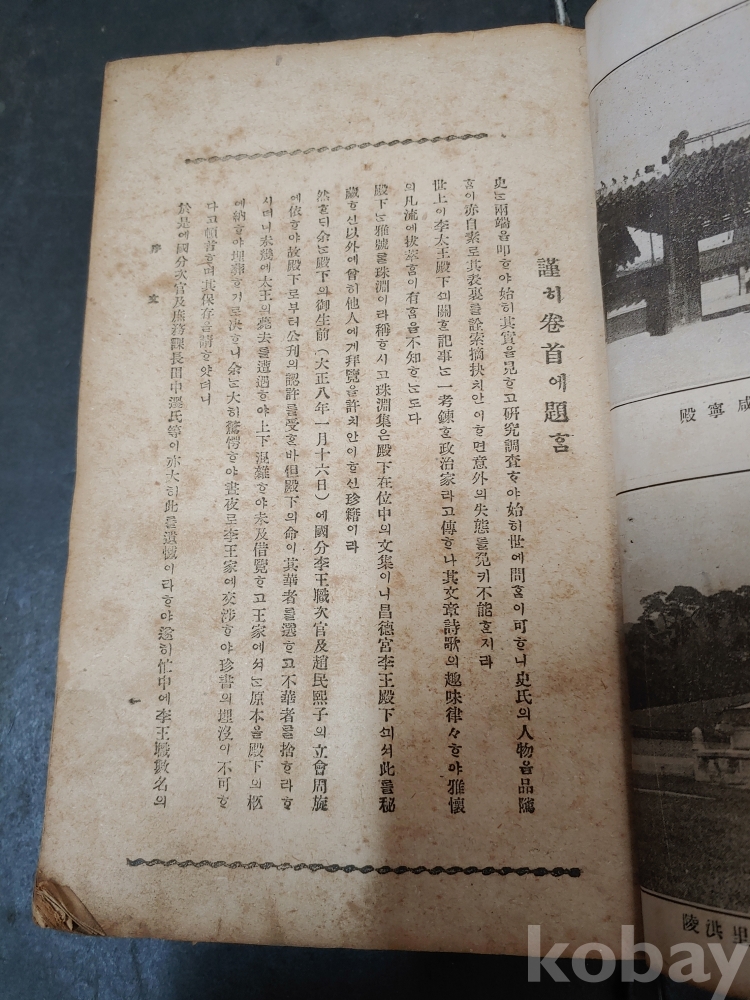 謹히卷首에題홈
史는兩端을叩ᄒᆞ야始히其實을見ᄒᆞ고硏究調査ᄒᆞ야始히世에問ᄒᆞ이可ᄒᆞ니史氏의人物을品隲
홈이亦自素로其表裏를詮索摘抉치안이ᄒᆞ면意外의失態를免키不能ᄒᆞᆯ지라
世上이李太王殿下의關ᄒᆞᆫ記事는一考鍊ᄒᆞᆫ政治家라고傳ᄒᆞ나其文章詩歌의趣味律々ᄒᆞ야雅懷
의凡流에拔萃홈이有홈을不知ᄒᆞ는도다
殿下는雅號를珠淵이라稱ᄒᆞ시고珠淵集은殿下在位中의文集이니昌德宮李王殿下ᄭᅴ셔此를秘
藏ᄒᆞ신以外에曾히他人에게拜覽을許치안이ᄒᆞ신珍籍이라
然ᄒᆞᆫᄃᆡ余는殿下의御生前(大正八年一月十六日)에國分李王職次官及趙民熙子의立會周旋
에依ᄒᆞ야故殿下로부터公刊의認許를受ᄒᆞᆫ바但殿下의命이其華者를選ᄒᆞ고不華者를拾ᄒᆞ라ᄒᆞ
시더니未幾에太王의薨去를遭遇ᄒᆞ야上下混雜ᄒᆞ야未及借覽ᄒᆞ고王家에셔는原本을殿下의柩
에納ᄒᆞ야埋葬ᄒᆞ기로決ᄒᆞ니余는大히驚愕ᄒᆞ야晝夜로李王家에交涉ᄒᆞ야珍書의埋沒이不可ᄒᆞ
다고頓首ᄒᆞ며其保存을請ᄒᆞ얏더니
於是에國分次官及庶務課長田中遷氏等이亦大히此를遺憾이라ᄒᆞ야遂히忙中에李王職數名의
序文
咸寧殿
里洪陵
kobay